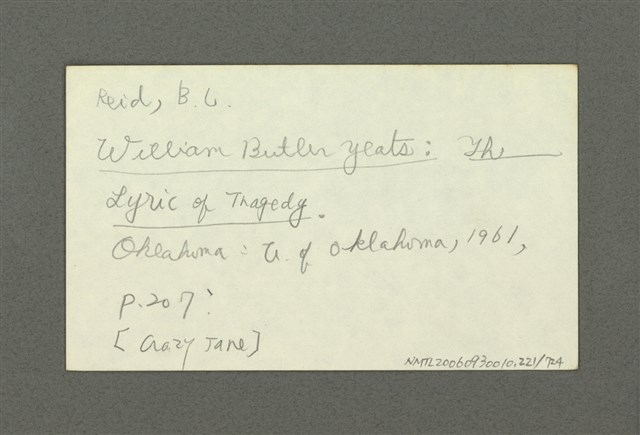 Reid, B. L.
William Butler Yeats: Th
Lyric of Tragedy.
Oklahoma: U. of Oklahoma, 1961,
p.207:
[Crazy Jane]
NMTL20060930010.221/724